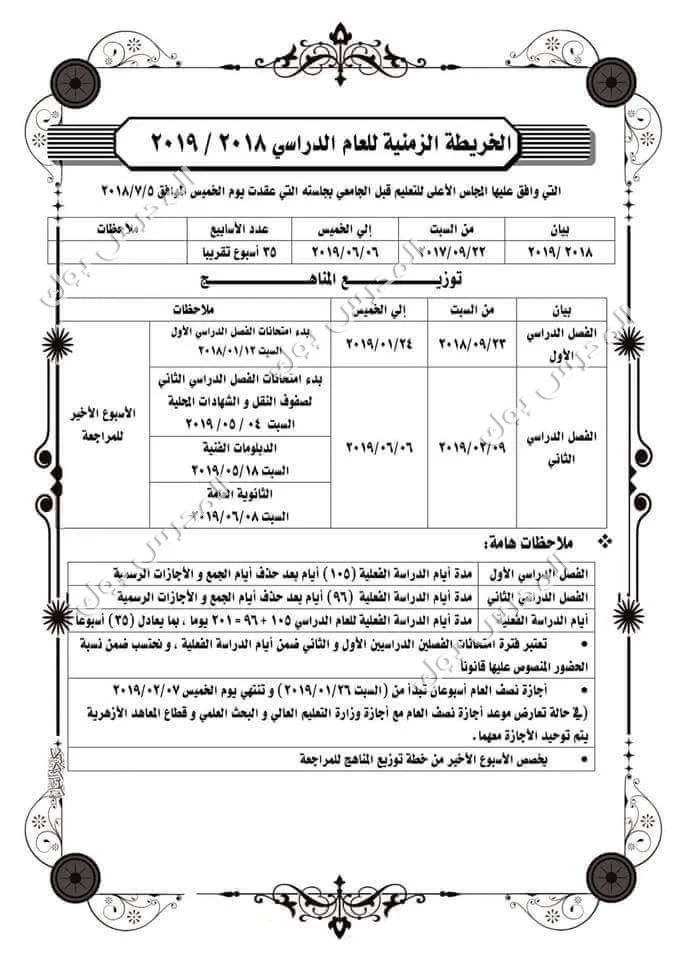 الخريطة الزمنية للعام الدراسي ٢٠١٨ / ٢٠١٩
التي وافق عليها المجلس الأعلى للتعليم قبل الجامعي بجلسته التي عقدت يوم الخميس الموافق ٢٠١٨/٧/٥
بيان من السبت إلي الخميس عدد الأسابيع ملاحظات
٢٠١٩/ ٢٠١٨ ٢٠١٧/٠٩/٢٢ ٢٠١٩/٠٦/٠٦ ٣٥ أسبوع تقريبا
توزيـــــع المناهـــج
بيان من السبت إلي الخميس ملاحظات
الفصل الدراسي الأول ٢٠١٨/٠٩/٢٣ ٢٠١٩/٠١/٢٤
بدء امتحانات الفصل الدراسي الأول
السبت ٢٠١٨/٠١/١٢
الفصل الدراسي الثاني ٢٠١٩/٠٢/٠٩ ٢٠١٩/٠٦/٠٦
بدء امتحانات الفصل الدراسي الثاني
لصفوف النقل و الشهادات المحلية
السبت ٠٤ / ٠٥ / ٢٠١٩
الدبلومات الفنية
السبت ٢٠١٩/٠٥/١٨
الثانوية العامة
السبت ٢٠١٩/٠٦/٠٨
الأسبوع الأخير
للمراجعة
❖ ملاحظات هامة:
الفصل الدراسي الأول مدة أيام الدراسة الفعلية (١٠٥) أيام بعد حذف أيام الجمع و الأجازات الرسمية
الفصل الدراسي الثاني مدة أيام الدراسة الفعلية (٩٦) أيام بعد حذف أيام الجمع و الأجازات الرسمية
أيام الدراسة الفعلية مدة أيام الدراسة الفعلية للعام الدراسي ١٠٥ + ٩٦ = ٢٠١ يوما ، بما يعادل (٣٥) أسبوعا
• تعتبر فترة امتحانات الفصلين الدراسيين الأول و الثاني ضمن أيام الدراسة الفعلية ، و تحتسب ضمن نسبة
الحضور المنصوص عليها قانوناً
• أجازة نصف العام أسبوعان تبدأ من (السبت ٢٠١٩/٠١/٢٦) و تنتهي يوم الخميس ٢٠١٩/٠٢/٠٧
(في حالة تعارض موعد أجازة نصف العام مع أجازة وزارة التعليم العالي و البحث العلمي و قطاع المعاهد الأزهرية
يتم توحيد الأجازة معهما.
• يخصص الأسبوع الأخير من خطة توزيع المناهج للمراجعة
المدرس بوك
المدرس بوك
المدرس بوك
المدرس بوك
المدرس بوك